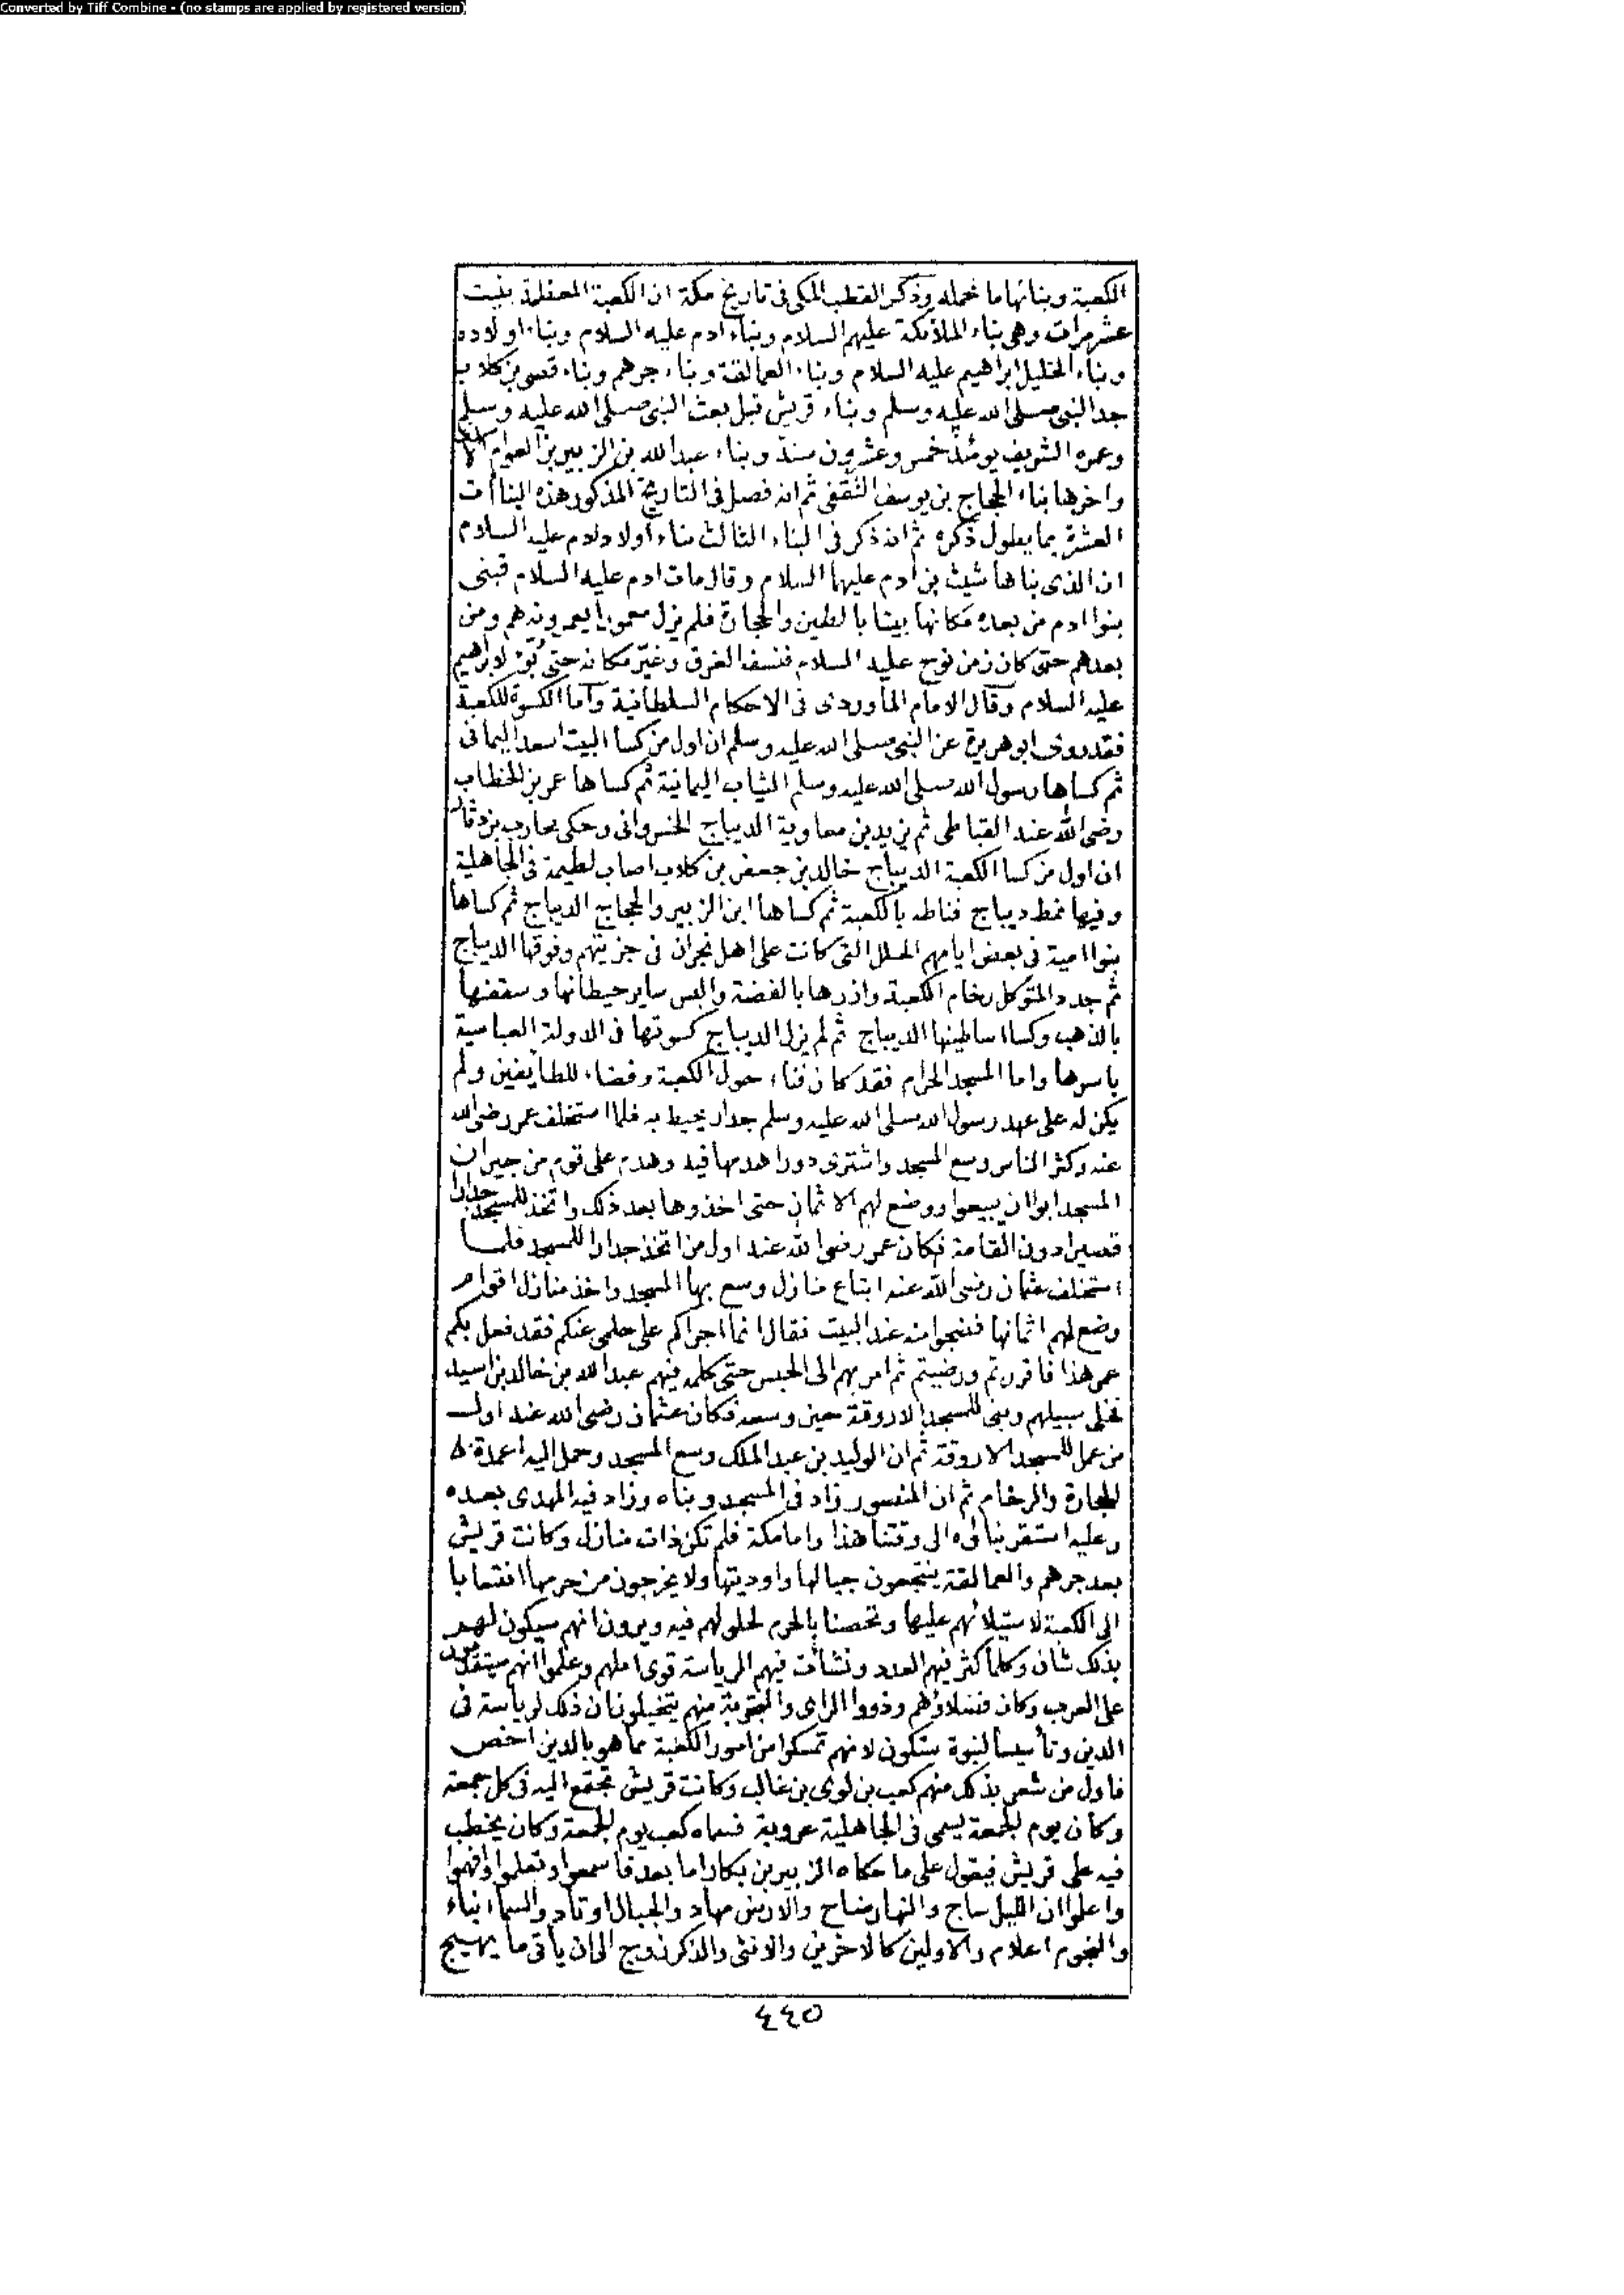 Converted by Tiff Combine - (no stamps are applied by registered version)
الكعبة وبنائها ما محمله وذكر القطب المكى فى تاريخ مكة ان الكعبة المعظمة بنيت
عشر مرات وهى بناء الملائكة عليهم السلام وبناء ادم عليه السلام وبناء اولاده
وبناء الخليل ابراهيم عليه السلام وبناء العمالقة وبناء جرهم وبناء قصى بن كلاب
جد النبى صلى الله عليه وسلم وبناء قريش قبل بعث النبى صلى الله عليه وسلم
وعمره الشريف يومئذ خمس وعشرون سنة وبناء عبد الله بن الزبير بن العوام
واخرها بناء الحجاج بن يوسف الثقفى ثم انه فصل فى التاريخ المذكور هذه البناأت
العشرة بما يطول ذكره ثم انه ذكر فى البناء الثالث بناء أولاد ادم عليه السلام
ان الذى بناها شيث بن ادم عليهما السلام وقال مات ادم عليه السلام فبنى
بنوا ادم من بعده مكانها بيتا بالطين والحجارة فلم يزل معمورا يعمرونه هم ومن
بعدهم حتى كان زمن نوح عليه السلام فنسفه الغرق وغيّر مكانه حتى بُوّئ لابراهيم
عليه السلام وقال الامام الماوردى فى الاحكام السلطانية وأما الكسوة للكعبة
فقد روى ابو هريرة عن النبى صلى الله عليه وسلم ان اول من كسا البيت اسعد اليمانى
ثم كساها رسول الله صلى الله عليه وسلم الثياب اليمانية ثم كساها عمر بن الخطاب
رضى الله عنه القباطى ثم يزيد بن معاوية الديباج الخسروانى وحكى محارب بن دثار
ان اول من كسا الكعبة الديباج خالد بن جعفر بن كلاب اصاب لطيمة فى الجاهلية
وفيها نمط ديباج فناطه بالكعبة ثم كساها ابن الزبير والحجاج الديباج ثم كساها
بنوا امية فى بعض ايامهم الحلل التى كانت على اهل نجران فى جزيتهم وفوقها الديباج
ثم جدد المتوكل رخام الكعبة وازرها بالفضة والبس ساير حيطانها وسقفها
بالذهب وكسا اساطينها الديباج ثم لم يزل الديباج كسوتها فى الدولة العباسية
باسرها واما المسجد الحرام فقد كان فناء حول الكعبة وفضاء للطايفين ولم
يكن له على عهد رسول الله صلى الله عليه وسلم جدار يحيط به فلما استخلف عمر رضى الله
عنه وكثر الناس وسع المسجد واشترى دورا هدمها فيه وهدم على قوم من جيران
المسجد ابوا ان يبيعوا ووضع لهم الاثمان حتى اخذوها بعد ذلك واتخذ للمسجد جدارا
قصيرا دون القامة فكان عمر رضى الله عنه اول من اتخذ جدارا للمسجد فلما
استخلف عثمان رضى الله عنه ابتاع منازل وسع بها المسجد واخذ منازل اقوام
وضع لهم اثمانها فضجوا منه عند البيت فقال انما اجراكم على حلمى عنكم فقد فعل بكم
عمر هذا فاقررتم ورضيتم ثم امر بهم الى الحبس حتى كلمه فيهم عبد الله بن خالد بن اسيد
فخلى سبيلهم وبنى للمسجد الاروقة حين وسعه فكان عثمان رضى الله عنه اول
من عمل للمسجد الاروقة ثم ان الوليد بن عبد الملك وسع المسجد وحمل اليه اعمدة
الحجارة والرخام ثم ان المنصور زاد فى المسجد وبناه وزاد فيه المهدى بعده
وعليه استقر بنائه الى وقتنا هذا واما مكة فلم تكن ذات منازل وكانت قريش
بعد جرهم والعمالقة ينتجعون جبالها واوديتها ولا يخرجون من حرمها انتسابا
الى الكعبة لاستيلائهم عليها وتخصنا بالحرم لحلولهم فيه ويرون انهم سيكون لهم
بذلك شان وكلما كثر فيهم العدد ونشأت فيهم الرياسة قوى املهم وعلموا انهم سيتقدمون
على العرب وكان فضلاؤهم وذووا الراى والتجربة منهم يتخيلون ان ذلك لرياسة فى
الدين وتأسيسا لنبوة ستكون لانهم تمسكوا من امور الكعبة مما هو بالدين اخص
فاول من شعر بذلك منهم كعب بن لوى بن غالب وكانت قريش تجتمع اليه فى كل جمعة
وكان يوم الجمعة يسمى فى الجاهلية عروبة فسماه كعب يوم الجمعة وكان يخطب
فيه على قريش فيقول على ما حكاه الزبير بن بكار اما بعد فاسمعوا وتعلموا وافهموا
واعلموا ان الليل ساج والنهار ضاح والارض مهاد والجبال اوتاد والسماء بناء
والنجوم اعلام والاولين كالاخرين والانثى والذكر زوج الى ان ياتى ما يهيج
٤٤٥